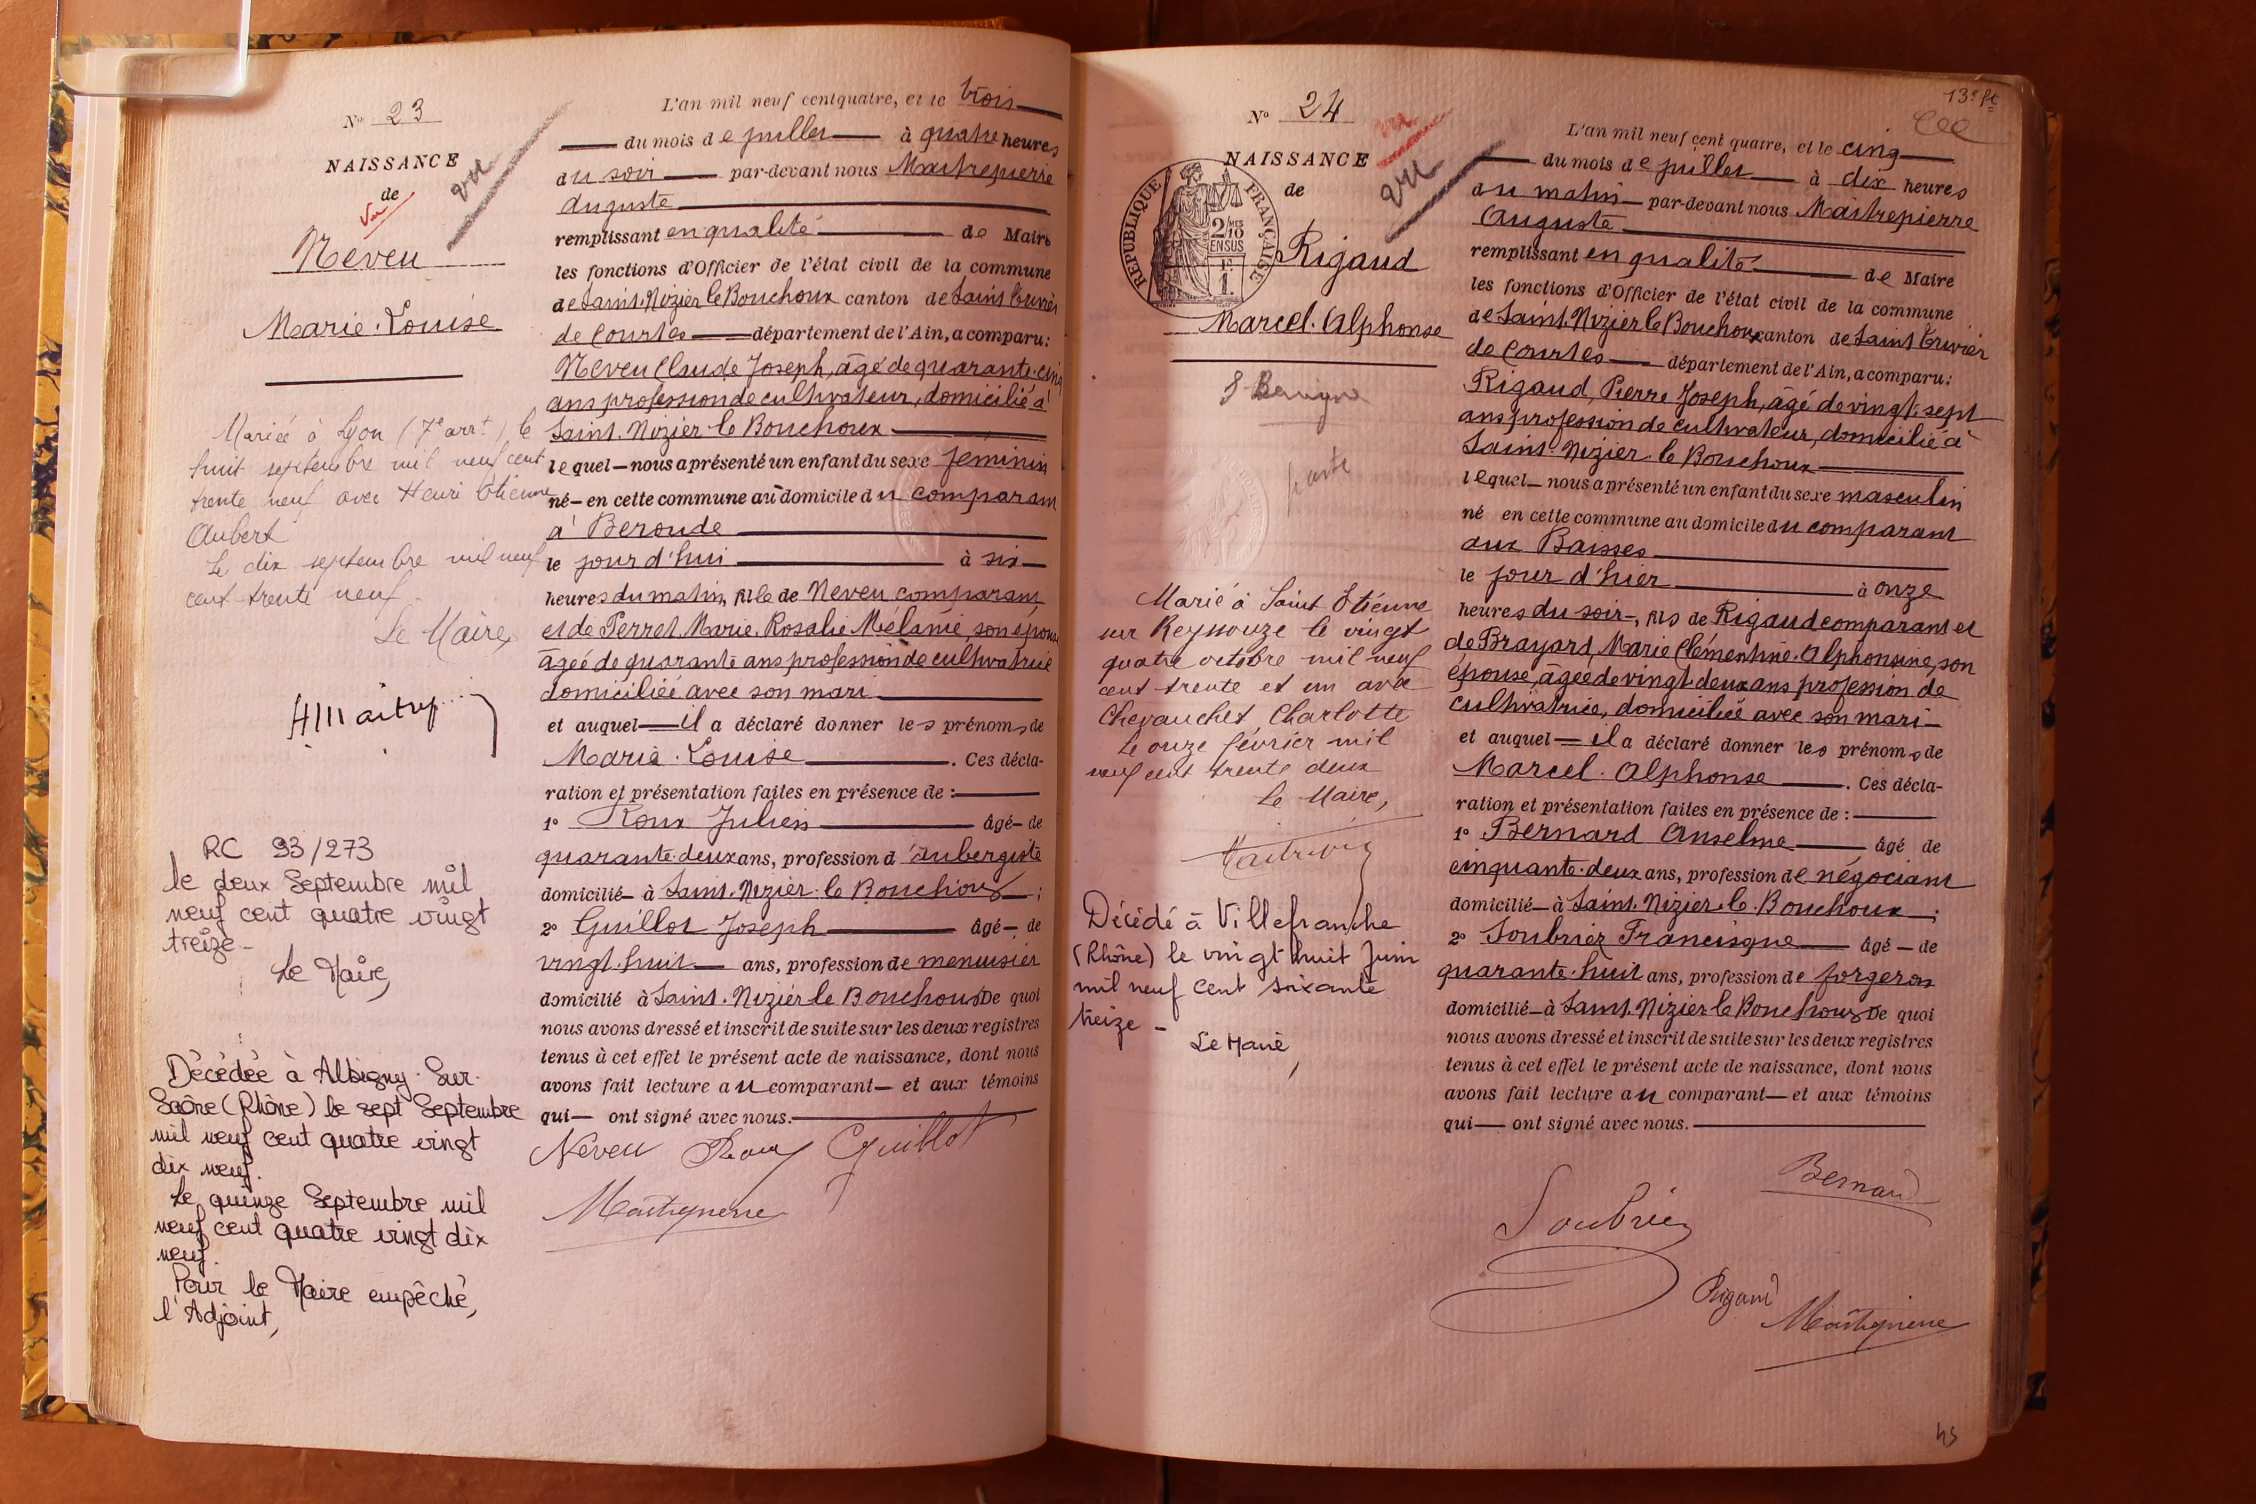 N° 23
NAISSANCE
de
Vu
vu
Neveu
Marie. Louise
Mariée à Lyon (7e arrt) le
huit septembre mil neuf cent
trente neuf avec Henri Etienne
Aubert
Le dix septembre mil neuf
cent trente neuf.
Le Maire
RC 93/273
le deux Septembre mil
neuf cent quatre vingt
treize -
Le Maire,
Décédée à Albigny-Sur-
Saône (Rhône) le sept Septembre
mil neuf cent quatre vingt
dix neuf.
Le quinze Septembre mil
neuf cent quatre vingt dix
neuf.
Pour le Maire empêché,
l'Adjoint,
L'an mil neuf cent quatre, et le trois
du mois de juillet à quatre heures
du soir par-devant nous Maitrepierre
Auguste
remplissant en qualité de Maire
les fonctions d'Officier de l'état civil de la commune
de Saint. Nizier le Bouchoux canton de Saint Trivier
de Courtes département de l'Ain, a comparu:
Neveu Claude Joseph, âgé de quarante-cinq
ans profession de cultivateur, domicilié à
Saint. Nizier le Bouchoux
lequel nous a présenté un enfant du sexe féminin
né en cette commune au domicile du comparant
à Beroude
le jour d'hui à six
heures du matin, fille de Neveu comparant
et de Perret Marie. Rosalie Mélanie, son épouse
âgée de quarante ans profession de cultivatrice
domiciliée avec son mari
et auquel il a déclaré donner les prénoms de
Marie. Louise. Ces décla-
ration et présentation faites en présence de :
1° Roux Julien âgé de
quarante-deux ans, profession d'aubergiste
domicilié à Saint. Nizier le Bouchoux ;
2° Guillot Joseph âgé de
vingt-huit ans, profession de menuisier
domicilié à Saint. Nizier le Bouchoux De quoi
nous avons dressé et inscrit de suite sur les deux registres
tenus à cet effet le présent acte de naissance, dont nous
avons fait lecture au comparant et aux témoins
qui ont signé avec nous.
Neveu Roux Guillot
Maitrepierre
13e ft
N° 24
NAISSANCE
de
vu
vu
REPUBLIQUE FRANÇAISE
2/10 EN SUS
Rigaud
Marcel. Alphonse
Marié à Saint Etienne
sur Reyssouze le vingt
quatre octobre mil neuf
cent trente et un avec
Chevauchet Charlotte
Le onze février mil
neuf cent trente deux
Le Maire,
Décédé à Villefranche
(Rhône) le vingt huit Juin
mil neuf cent soixante
treize -
Le Maire,
L'an mil neuf cent quatre, et le cinq
du mois de juillet à dix heures
du matin par-devant nous Maitrepierre
Auguste
remplissant en qualité de Maire
les fonctions d'Officier de l'état civil de la commune
de Saint. Nizier le Bouchoux canton de Saint Trivier
de Courtes département de l'Ain, a comparu:
Rigaud, Pierre Joseph, âgé de vingt-sept
ans profession de cultivateur, domicilié à
Saint. Nizier le Bouchoux
lequel nous a présenté un enfant du sexe masculin
né en cette commune au domicile du comparant
aux Baisses
le jour d'hier à onze
heures du soir, fils de Rigaud comparant et
de Brayard, Marie Clémentine. Alphonsine, son
épouse, âgée de vingt deux ans profession de
cultivatrice, domiciliée avec son mari
et auquel il a déclaré donner les prénoms de
Marcel. Alphonse. Ces décla-
ration et présentation faites en présence de :
1° Bernard Anselme âgé de
cinquante-deux ans, profession de négociant
domicilié à Saint. Nizier le Bouchoux ;
2° Soubriez Francisque âgé de
quarante-huit ans, profession de forgeron
domicilié à Saint. Nizier le Bouchoux De quoi
nous avons dressé et inscrit de suite sur les deux registres
tenus à cet effet le présent acte de naissance, dont nous
avons fait lecture au comparant et aux témoins
qui ont signé avec nous.
Bernard
Soubriez
Rigaud
Maitrepierre
45